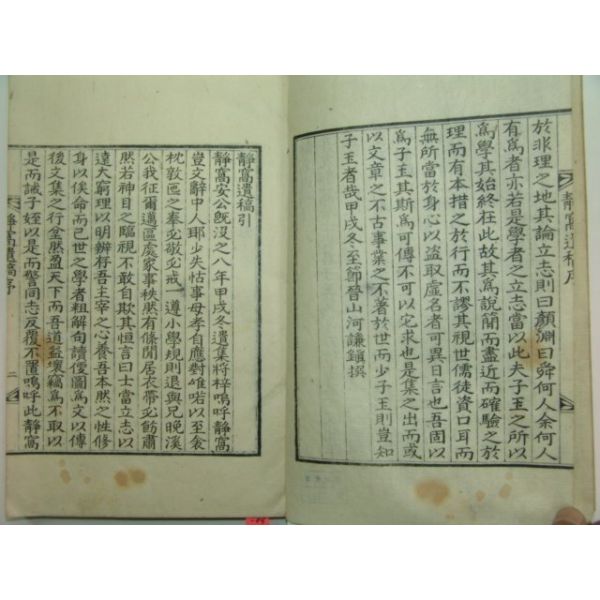 於非理之地其論立志則曰顏淵曰舜何人余何人
有爲者亦若是學者之立志當以此夫子玉之所以
爲學其始終在此故其爲說簡而盡近而確驗之於
理而有本措之於行而不謬其視世儒徒資口耳而
無所當於身心以盜取虛名者可異日言也吾固以
爲子玉其斯爲可傳不可以宅求也是集之出而或
以文章之不古事業之不著於世而少子玉則豈知
子玉者哉甲戌冬至節晉山河謙鎭撰
靜窩遺稿序
靜窩遺稿引
靜窩安公旣沒之八年甲戌冬遺集將梓嗚呼靜窩
豈文辭中人耶少失怙事母孝自應對唯喏以至衾
枕敦匜之奉必敬必戒一遵小學規則退與兄晚溪
公我征爾邁區處家事秩然有條閒居衣帶必飭肅
然若神目之臨視不敢自欺其恒言曰士當立志以
遠大窮理以明辨存吾主宰之心養吾本然之性修
身以俟命而已世之學者粗解句讀傻圖爲文以傳
後文集之行坌然盈天下而吾道益壞竊爲不取以
是而誡子姪以是而警同志反覆不置嗚呼此靜窩
靜窩遺稿序
二